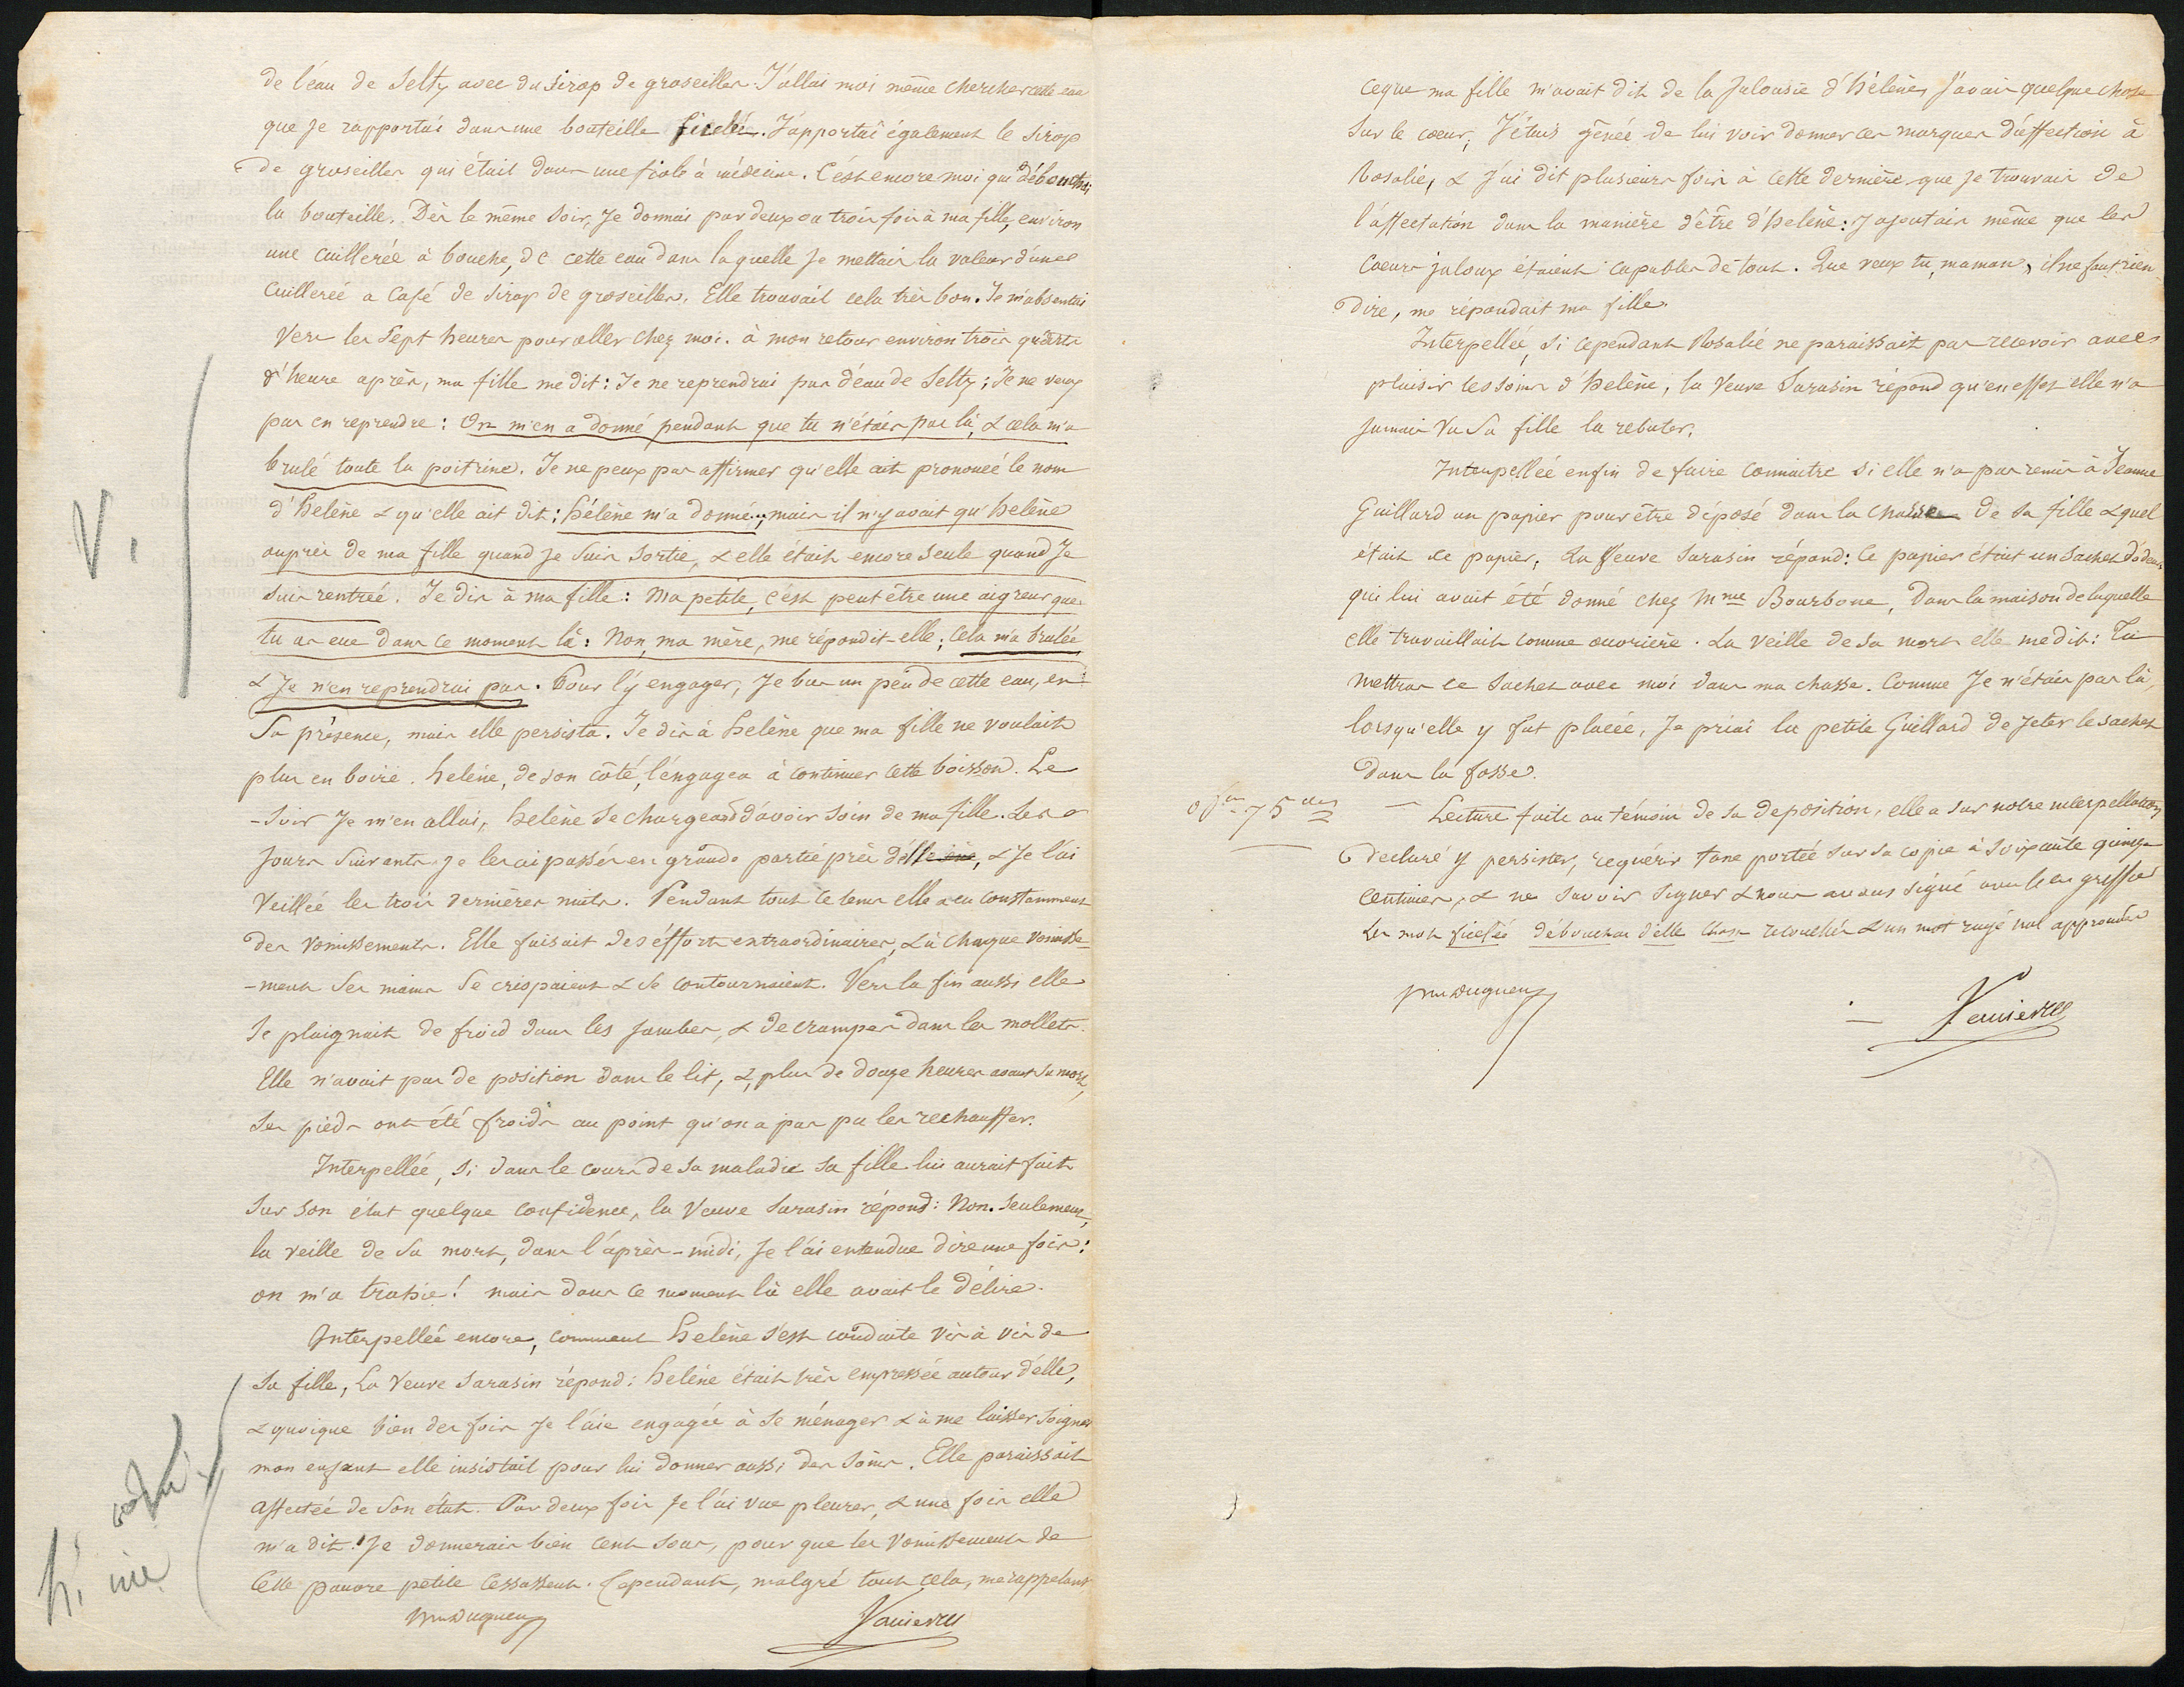 de l'eau de Seltz avec du sirop de groseilles. J'allai moi même chercher cette eau
que je rapportai dans une bouteille ficelée. J'apportai également le sirop
de groseilles qui était dans une fiole à médecine. C'est encore moi qui débouchai
la bouteille. Dès le même soir, je donnai par deux ou trois fois à ma fille, environ
une cuillerée à bouche, de cette eau dans laquelle je mettais la valeur d'une
cuillereé a café de sirop de groseilles. Elle trouvait cela très bon. Je m'absentai
vers les sept heures pour aller chez moi. à mon retour environ trois quarts
d'heure après, ma fille me dit: Je ne reprendrai pas d'eau de Seltz; Je ne veux
pas en reprendre: On m'en a donné pendant que tu n'étais pas là, & cela m'a
brulé toute la poitrine. Je ne peux pas affirmer qu'elle ait prononcé le nom
d'helène & qu'elle ait dit: hélène m'a donné..; mais il n'y avait qu'helène
auprès de ma fille quand je suis sortie, & elle était encore seule quand je
suis rentrée. Je dis à ma fille: Ma petite, c'est peut être une aigreur que
tu as eue dans ce moment là: Non, ma mère, me répondit elle; cela m'a brulée
& je n'en reprendrai pas. Pour l'y engager, je bus un peu de cette eau, en
sa présence, mais elle persista. Je dis à helène que ma fille ne voulait
plus en boire. helène, de son côté, l'engagea à continuer cette boisson. Le
soir je m'en allai, helène se chargeant d'avoir soin de ma fille. Les
jours suivants, je les ai passés en grande partie près d'elle, & je l'ai
veillée les trois dernières nuits. Pendant tout ce tems elle a eu constamment
des vomissements. Elle faisait des éfforts extraordinaires, & à chaque vomisse-
-ment ses mains se crispaient & se contournaient. Vers la fin aussi elle
se plaignait de froid dans les jambes, & de crampes dans les mollets.
Elle n'avait pas de position dans le lit, &, plus de douze heures avant sa mort,
ses pieds ont été froids au point qu'on a pas pu les rechauffer.
Interpellée, si dans le cours de sa maladie sa fille lui aurait fait
sur son état quelque confidence, la Veuve Sarasin répond: Non. Seulement,
la veille de sa mort, dans l'après-midi, je l'ai entendue dire une fois:
on m'a trahie! mais dans ce moment là elle avait le délire.
Interpellée encore, comment helène s'est conduite vis à vis de
sa fille, La Veuve Sarasin répond: helène était très empressée autour d'elle,
& quoique bien des fois je l'aie engagée à se ménager & à me laisser soigner
mon enfant elle insistait pour lui donner aussi des soins. Elle paraissait
affectée de son état. Par deux fois je l'ai vue pleurer, & une fois elle
m'a dit: Je donnerais bien cent sous, pour que les vomissements de
cette pauvre petite cessassent. Cependant, malgré tout cela, me rappelant
V.
ceque ma fille m'avait dit de la jalousie d'hélène, j'avais quelque chose
sur le coeur; J'étais gênée de lui voir donner ces marques d'affection à
Rosalie, & j'ai dit plusieurs fois à cette dernière que je trouvais de
l'affectation dans la manière d'être d'helène: j'ajoutais même que les
coeurs jaloux étaient capables de tout. Que veux tu, maman, il ne faut rien
dire, me répondait ma fille.
Interpellée, si cependant Rosalie ne paraissait pas recevoir avec
plaisir les soins d'helène, la Veuve Sarasin répond qu'en effet elle n'a
jamais vu sa fille la rebuter.
Interpellée enfin de faire connaitre si elle n'a pas remis à Jeanne
Guillard un papier pour être déposé dans la chasse de sa fille & quel
était ce papier, La Veuve Sarasin répond: Ce papier était un sachet d'odeur
qui lui avait été donné chez Mme Bourbone, dans la maison de laquelle
elle travaillait comme ouvrière. La veille de sa mort elle me dit: Tu
mettras ce sachet avec moi dans ma chasse. Comme je n'étais pas là,
lorsqu'elle y fut placée, je priai la petite Guillard de jeter le sachet
dans la fosse.
Lecture faite au témoin de sa deposition, elle a sur notre interpellation
declaré y persister, requérir taxe portée sur sa copie à soixante quinze
centimes, & ne savoir signer & nous avons signé avec le greffier
Les mots ficelée débouchai d'elle chasse retouchés & un mot rayé nul approuvés